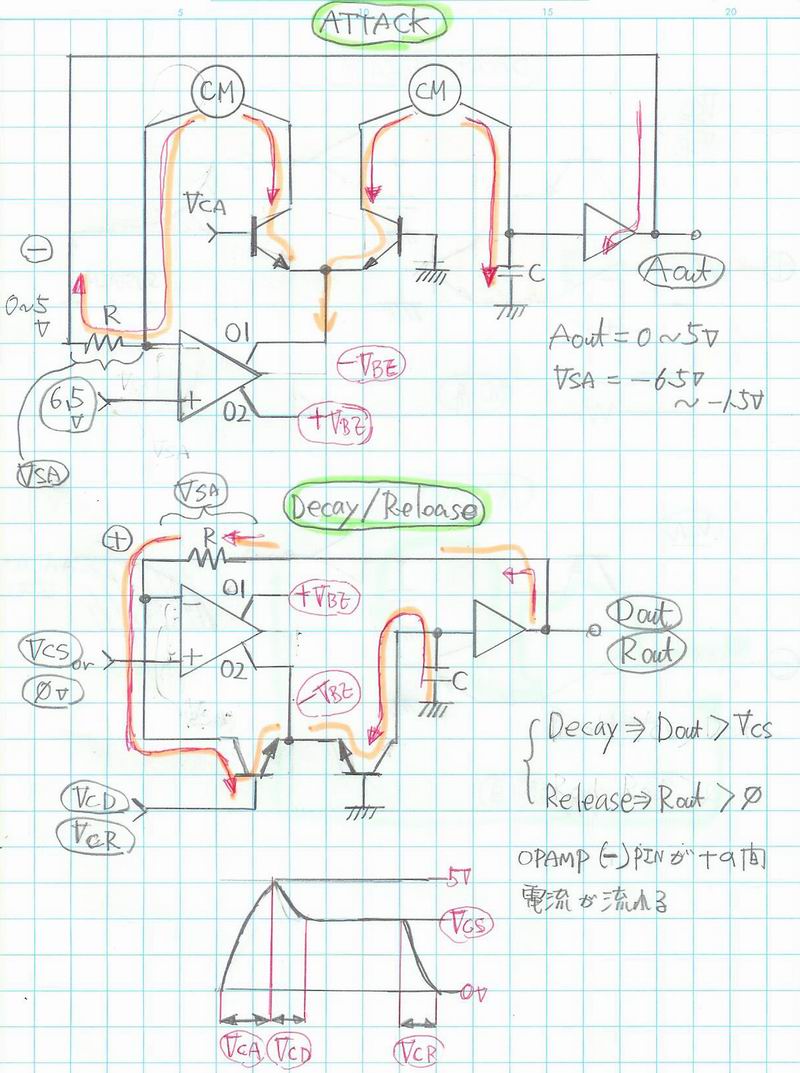 5
15
20
ATTACK
CM
CM
VCA
−
0~5
V
R
O1
C
Aout
−VBE
Aout = 0 ~ 5V
VSA = −6.5V
~ −1.5V
6.5
V
−
+
O2
+VBE
VSA
VSA
Decay/Release
+
R
O1
+VBE
−
+
VCS
or
0V
O2
−VBE
C
Dout
Rout
Decay ⇒ Dout > VCS
Release ⇒ Rout > 0
VCD
VCR
OPAMP (−) PINが+の間
電流が流れる
5V
VCS
0V
VCA
VCD
VCR